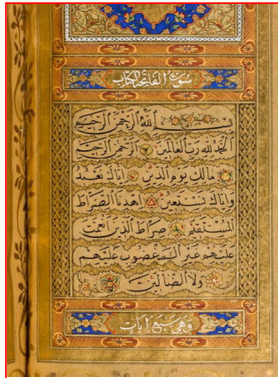 سورة الفاتحة الكتاب
بسم الله الرحمن الرحيم
الحمد لله رب العالمين الرحمن الرحيم
مالك يوم الدين اياك نعبد
واياك نستعين اهدنا الصراط
المستقيم صراط الذين انعمت
عليهم غير المغضوب عليهم
ولا الضالين
وهي سبع آيات